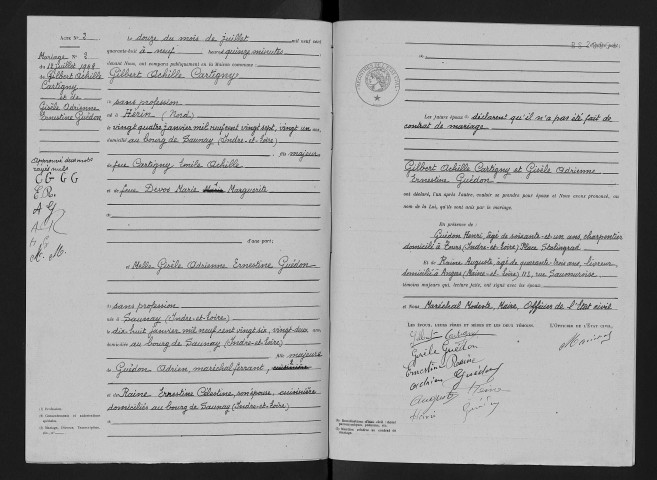 ACTE N° 2
Mariage N° 2
du 12 juillet 1948
Gilbert Achille
Cartigny
et de
Gisèle Adrienne
Ernestine Guédon
Approuvé deux mots
rayés nuls
G G G G
E R.
A G
A R
H G
M. M.
Le douze du mois de juillet mil neuf cent
quarante-huit à neuf heures quinze minutes
devant Nous, ont comparu publiquement en la Maison commune :
Gilbert Achille Cartigny
sans profession
né à Hérin (Nord)
le vingt quatre janvier mil neuf cent vingt sept, vingt un ans,
domicilié au bourg de Saunay (Indre-et-Loire)
fils majeur
de feu Cartigny Emile Achille
et de feue Devos Marie Marguerite
d'une part;
et Melle Gisèle Adrienne Ernestine Guédon
sans profession
née à Saunay (Indre-et-Loire)
le dix huit janvier mil neuf cent vingt six, vingt deux ans,
domiciliée au bourg de Saunay (Indre-et-Loire)
fille majeure
de Guédon Adrien, maréchal ferrant,
et de Raine Ernestine Célestine, son épouse, cuisinière
domiciliés au bourg de Saunay (Indre-et-Loire)
(1) Profession
Les futurs époux déclarent qu'il n'a pas été fait de
contrat de mariage
Gilbert Achille Cartigny et Gisèle Adrienne
Ernestine Guédon
ont déclaré, l'un après l'autre, vouloir se prendre pour époux et Nous avons prononcé, au
nom de la Loi, qu'ils sont unis par le mariage.
En présence de :
Guédon Henri, âgé de soixante-et-un ans, charpentier
domicilié à Tours (Indre-et-Loire) Place Stalingrad
Et de Raine Auguste, âgé de quarante-trois ans, livreur
domicilié à Angers (Maine-et-Loire) 112, rue Saumuroise
témoins majeurs qui, lecture faite, ont signé avec les époux
et Nous Maréchal Modeste, Maire, Officier de l'Etat civil
LES ÉPOUX, LEURS PÈRES ET MÈRES ET LES DEUX TÉMOINS. L'OFFICIER DE L'ÉTAT CIVIL,
Gilbert Cartigny
Gisèle Guédon
Ernestine Raine
Adrien Guédon
Auguste Raine
Henri Guédon